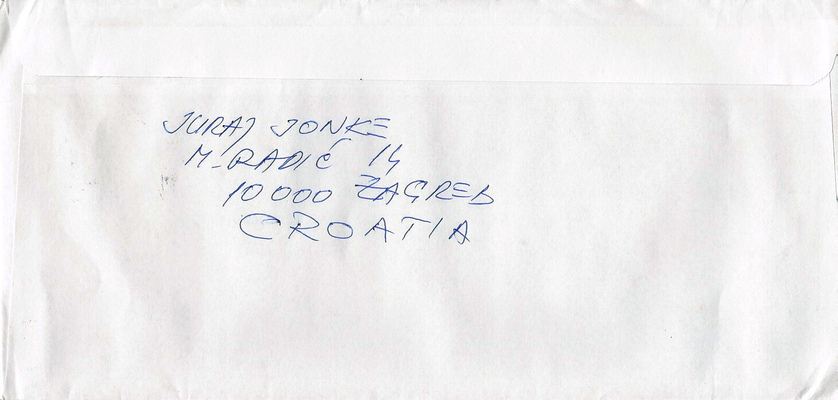 JURAJ JONKE
M. RADIĆ 14
10000 ZAGREB
CROATIA